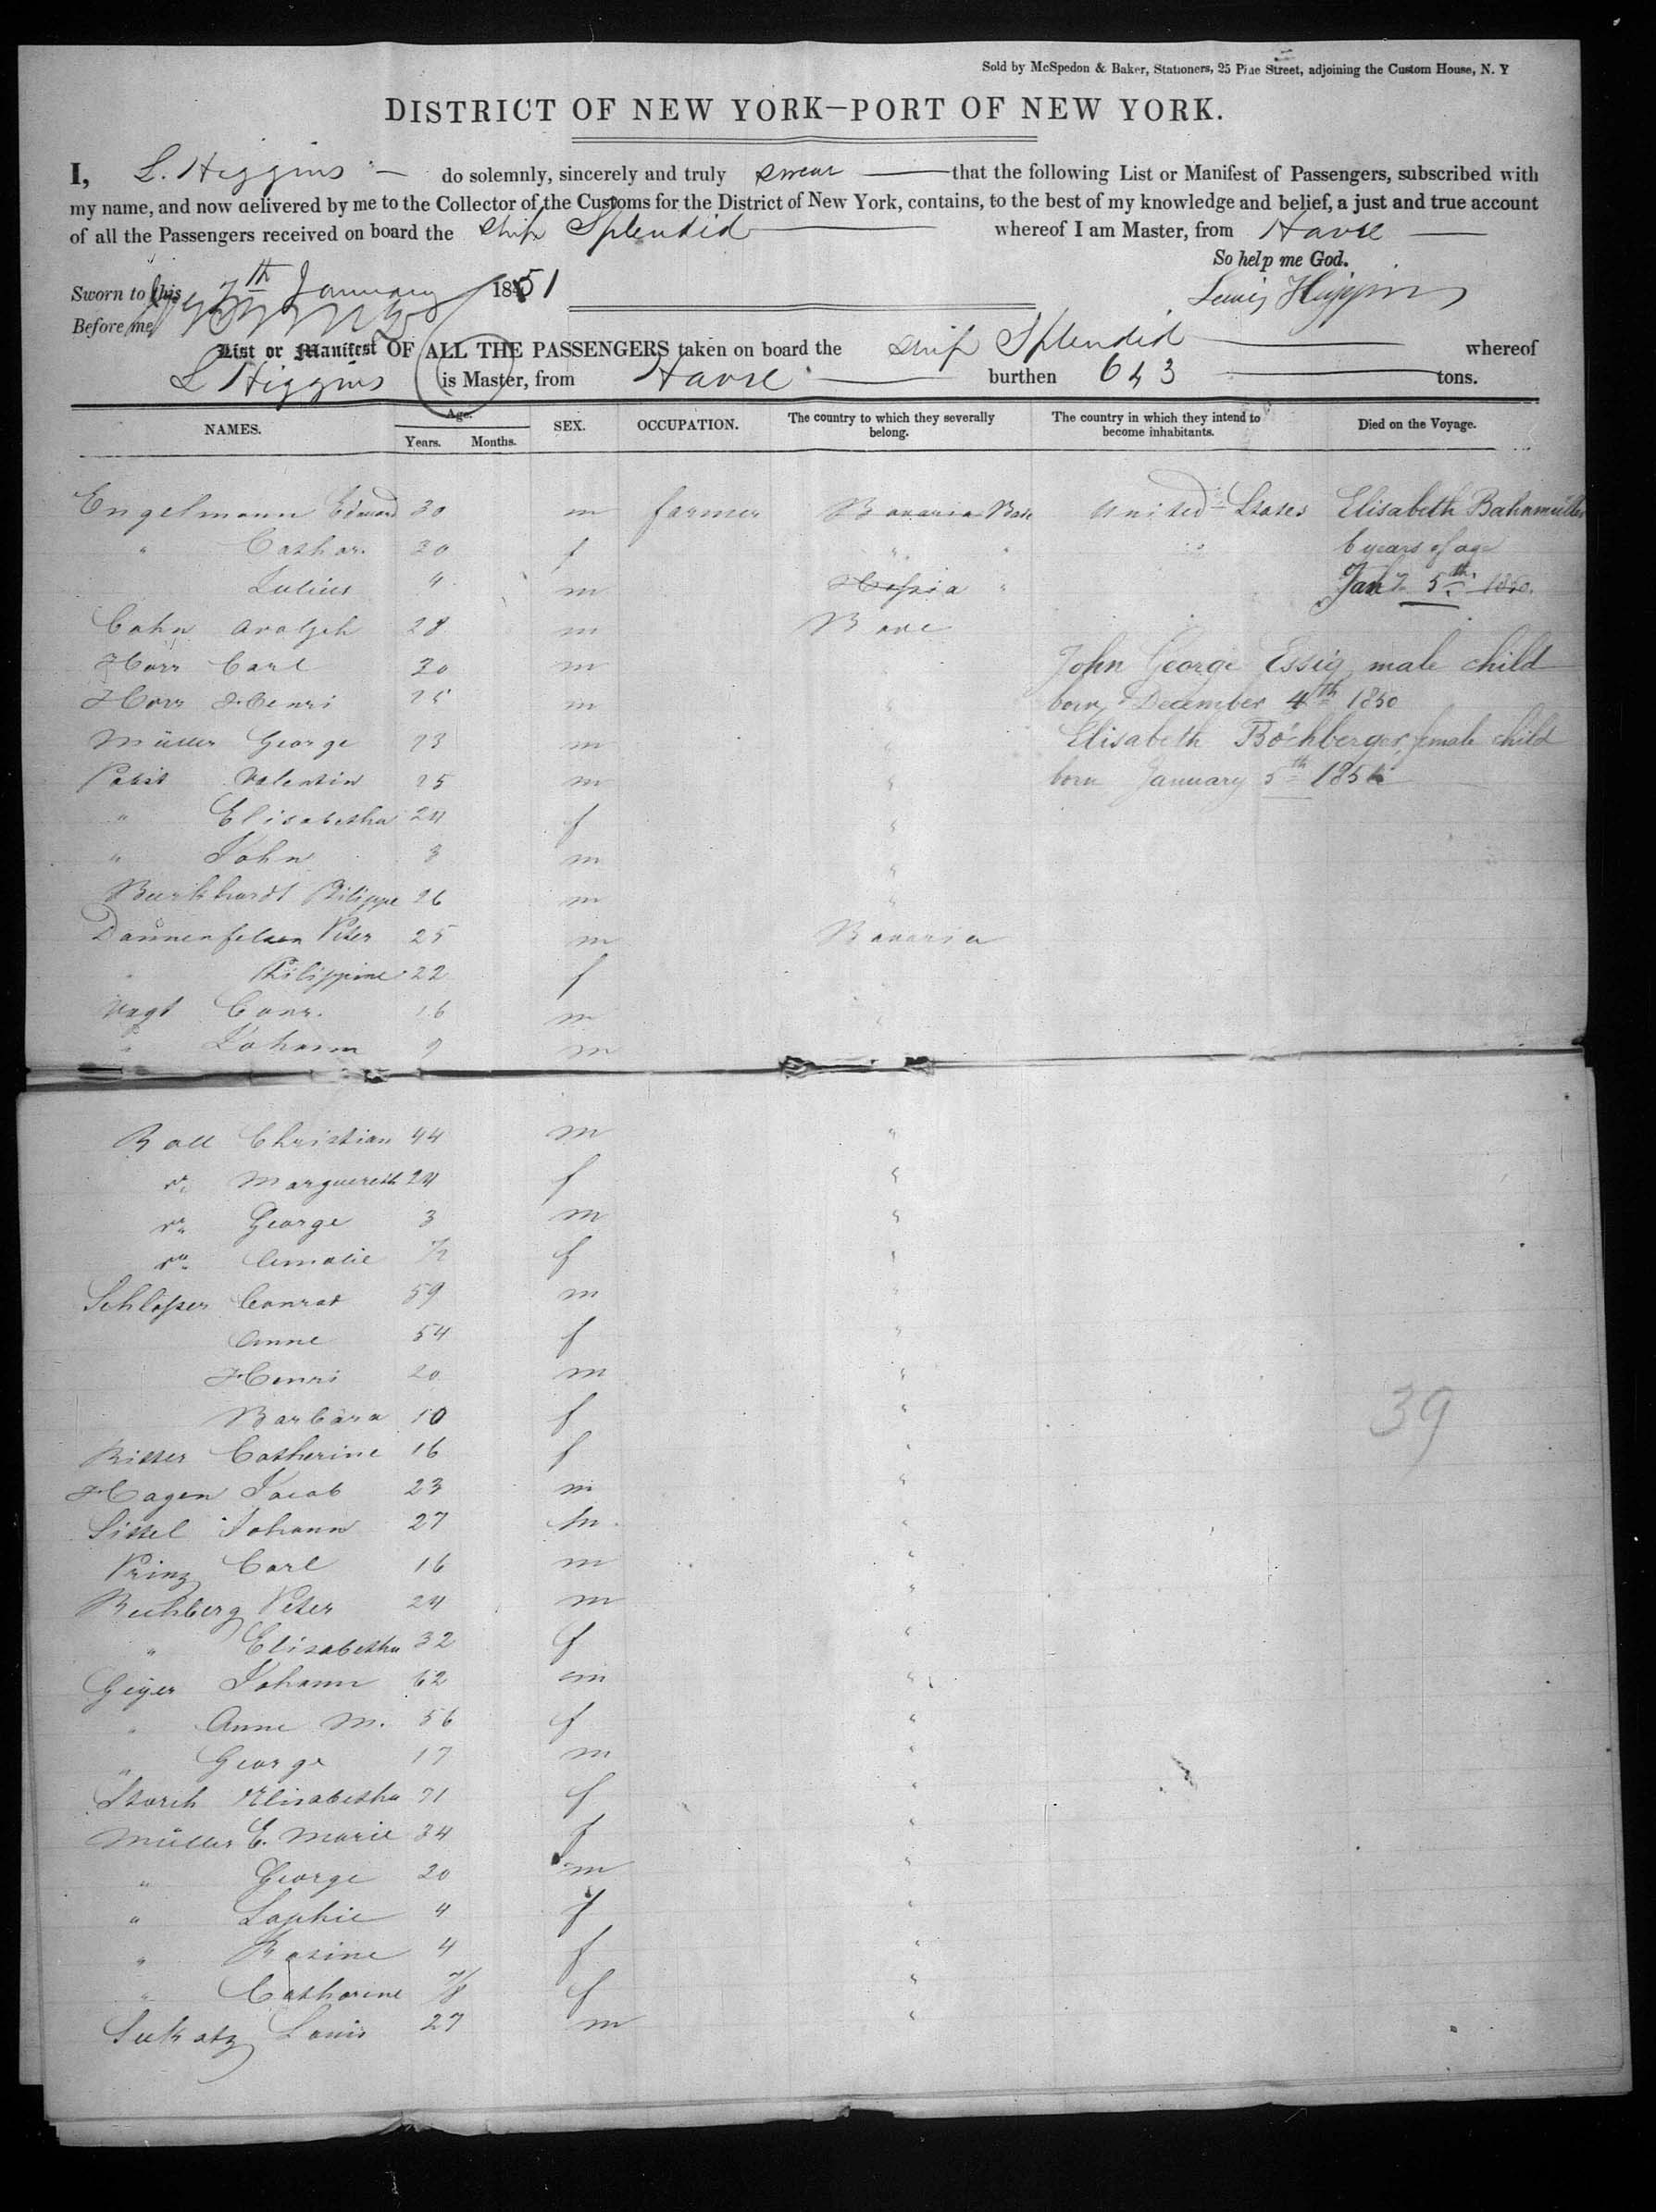 Sold by McSpedon & Baker, Stationers, 25 Pine Street, adjoining the Custom House, N. Y
DISTRICT OF NEW YORK—PORT OF NEW YORK.
I, L. Higgins do solemnly, sincerely and truly swear that the following List or Manifest of Passengers, subscribed with
my name, and now delivered by me to the Collector of the Customs for the District of New York, contains, to the best of my knowledge and belief, a just and true account
of all the Passengers received on board the Ship Splendid whereof I am Master, from Havre
So help me God.
Sworn to this 7th January 1851
Lewis Higgins
Before me
List or Manifest OF ALL THE PASSENGERS taken on board the Ship Splendid whereof
L Higgins is Master, from Havre burthen 643 tons.
NAMES. Age. Years. Months. SEX. OCCUPATION. The country to which they severally belong. The country in which they intend to become inhabitants. Died on the Voyage.
Engelmann Edward 30 m farmer Bavaria United States Elisabeth Bahnmüller
" Cathar. 30 f " " 6 years of age
Julius 4 m Hessia " Jany 5th 1850.
Cahn Adolph 28 m
Horr Carl 30 m John George Essig male child
Horr Henri 25 m " born December 4th 1850
Müller George 23 m " Elisabeth Böchberger, female child
Valentin 25 m " born January 5th 185
" Elisabetha 24 f "
" John 3 m "
Burkhardt Philippe 26 m "
Dannenfelsen Peter 25 m Bavaria
" Philippine 22 f "
Vogt Conr. 16 m "
" Johann 9 m
Ball Christian 44 m "
do Marguereth 24 f "
do George 3 m "
do Amalie 1/2 f "
Schlosser Conrad 59 m "
Anne 54 f "
Henri 20 m "
Barbara 10 f "
39
Ritter Catherine 16 f "
Hagen Jacob 23 m "
Sittel Johann 27 m "
Prinz Carl 16 m "
Buchberg Peter 24 m "
" Elisabetha 32 f "
Geiger Johann 62 m "
" Anne M. 56 f "
" George 17 m "
Storch Elisabetha 71 f "
Müller E. Marie 34 f "
" George 20 m "
" Sophie 4 f "
" Rosine 4 f "
" Catharine 7/8 f "
Louis 27 m "